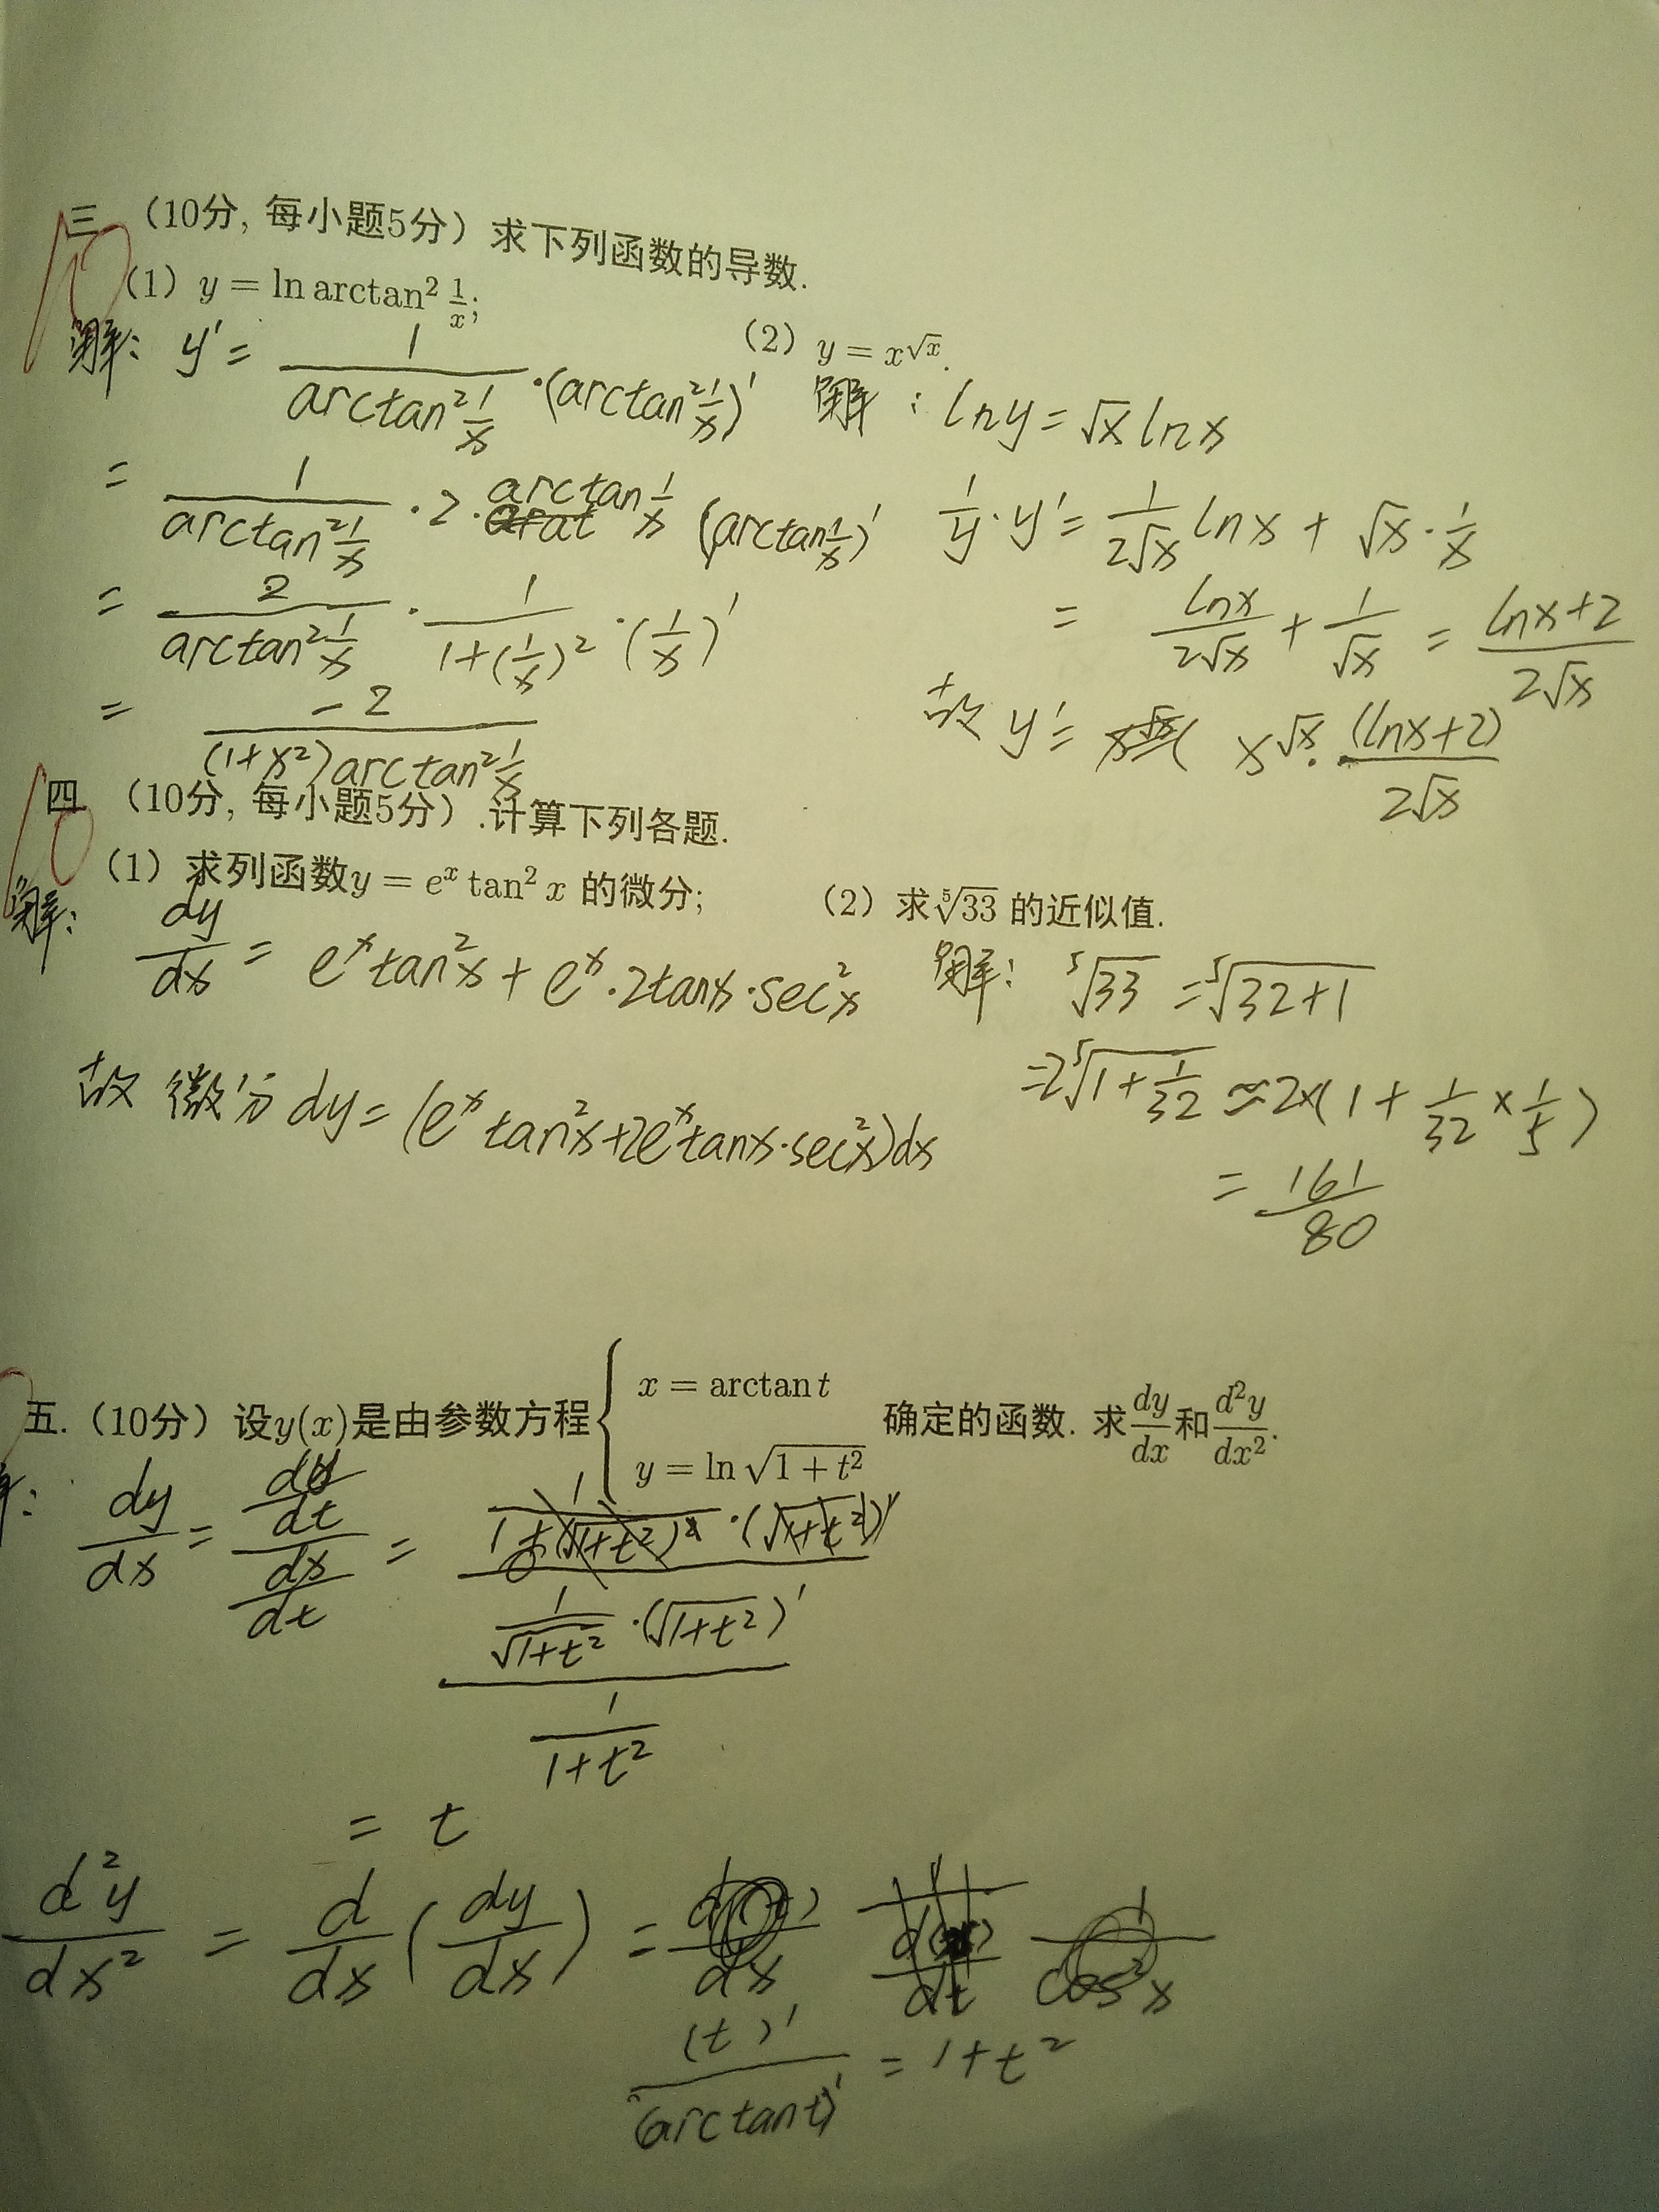 三 (10分, 每小题5分) 求下列函数的导数.
10
(1) y = ln arctan² 1/x;
(2) y = x^√x.
解: y' = 1/(arctan² 1/x) · (arctan² 1/x)'
= 1/(arctan² 1/x) · 2 · arctan 1/x (arctan 1/x)'
= 2/(arctan² 1/x) · 1/(1+(1/x)²) · (1/x)'
= -2/((1+x²) arctan² 1/x)
解: ln y = √x ln x
1/y · y' = 1/(2√x) ln x + √x · 1/x
= ln x/(2√x) + 1/√x = (ln x + 2)/(2√x)
故 y' = x^√x · (ln x + 2)/(2√x)
四 (10分, 每小题5分) .计算下列各题.
10
(1) 求列函数y = e^x tan² x 的微分;
(2) 求 ⁵√33 的近似值.
解: dy/dx = e^x tan² x + e^x · 2tan x · sec² x
故 微分 dy = (e^x tan² x + 2e^x tan x · sec² x)dx
解: ⁵√33 = ⁵√(32+1)
= 2 ⁵√(1 + 1/32) ≈ 2×(1 + 1/32 × 1/5)
= 161/80
五. (10分) 设y(x)是由参数方程 { x = arctan t
y = ln √(1+t²)
确定的函数. 求 dy/dx 和 d²y/dx².
dy/dx = (dy/dt)/(dx/dt) = (1/√(1+t²) · (√(1+t²))')/(1/(1+t²))
= t
d²y/dx² = d/dx (dy/dx) =
(t)'/(arctan t)' = 1+t²